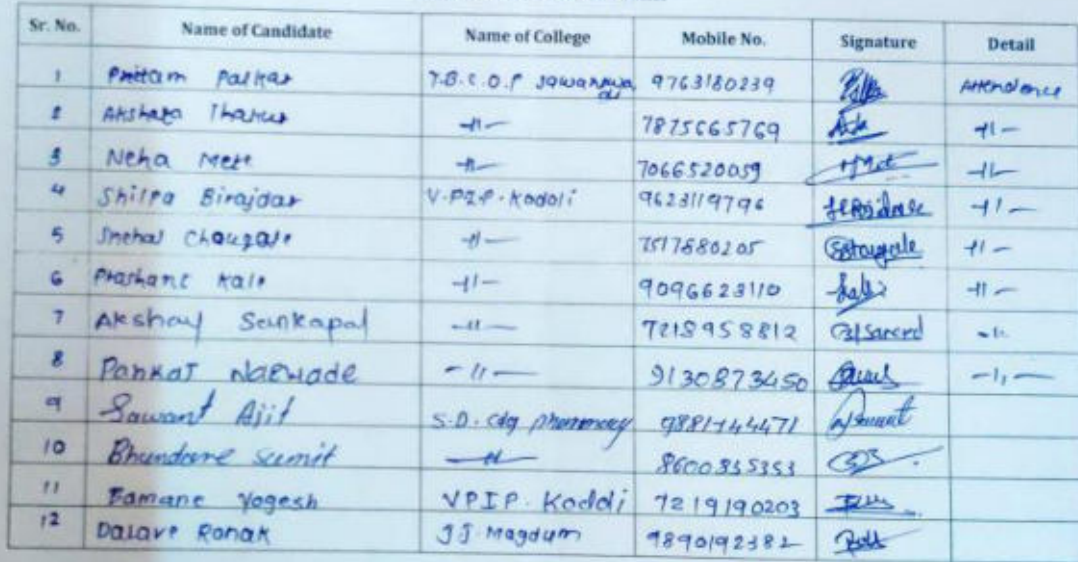 Sr. No. Name of Candidate Name of College Mobile No. Signature Detail
1 Pritam Palkar T.B.C.O.P 9763180239 Attendence
2 Akshata Thakur -11- 7875665769 -11-
3 Neha Mete -11- 7066520059 -11-
4 Shilpa Birajdar V.P.I.P. Kodoli 9623119796 -11-
5 Snehal Chougale -11- 7517880205 -11-
6 Prashant Kale -11- 9096623110 -11-
7 Akshay Sankapal -11- 7218958812 -11-
8 Pankaj -11- 9130873450 -11-
9 Sawant Ajit S.D. pharmacy 9881144471
10 Sumit -11- 8600855353
11 Yogesh VPIP. Kodoli 7219190203
12 Dalave Ronak J J. Magdum 9890192382